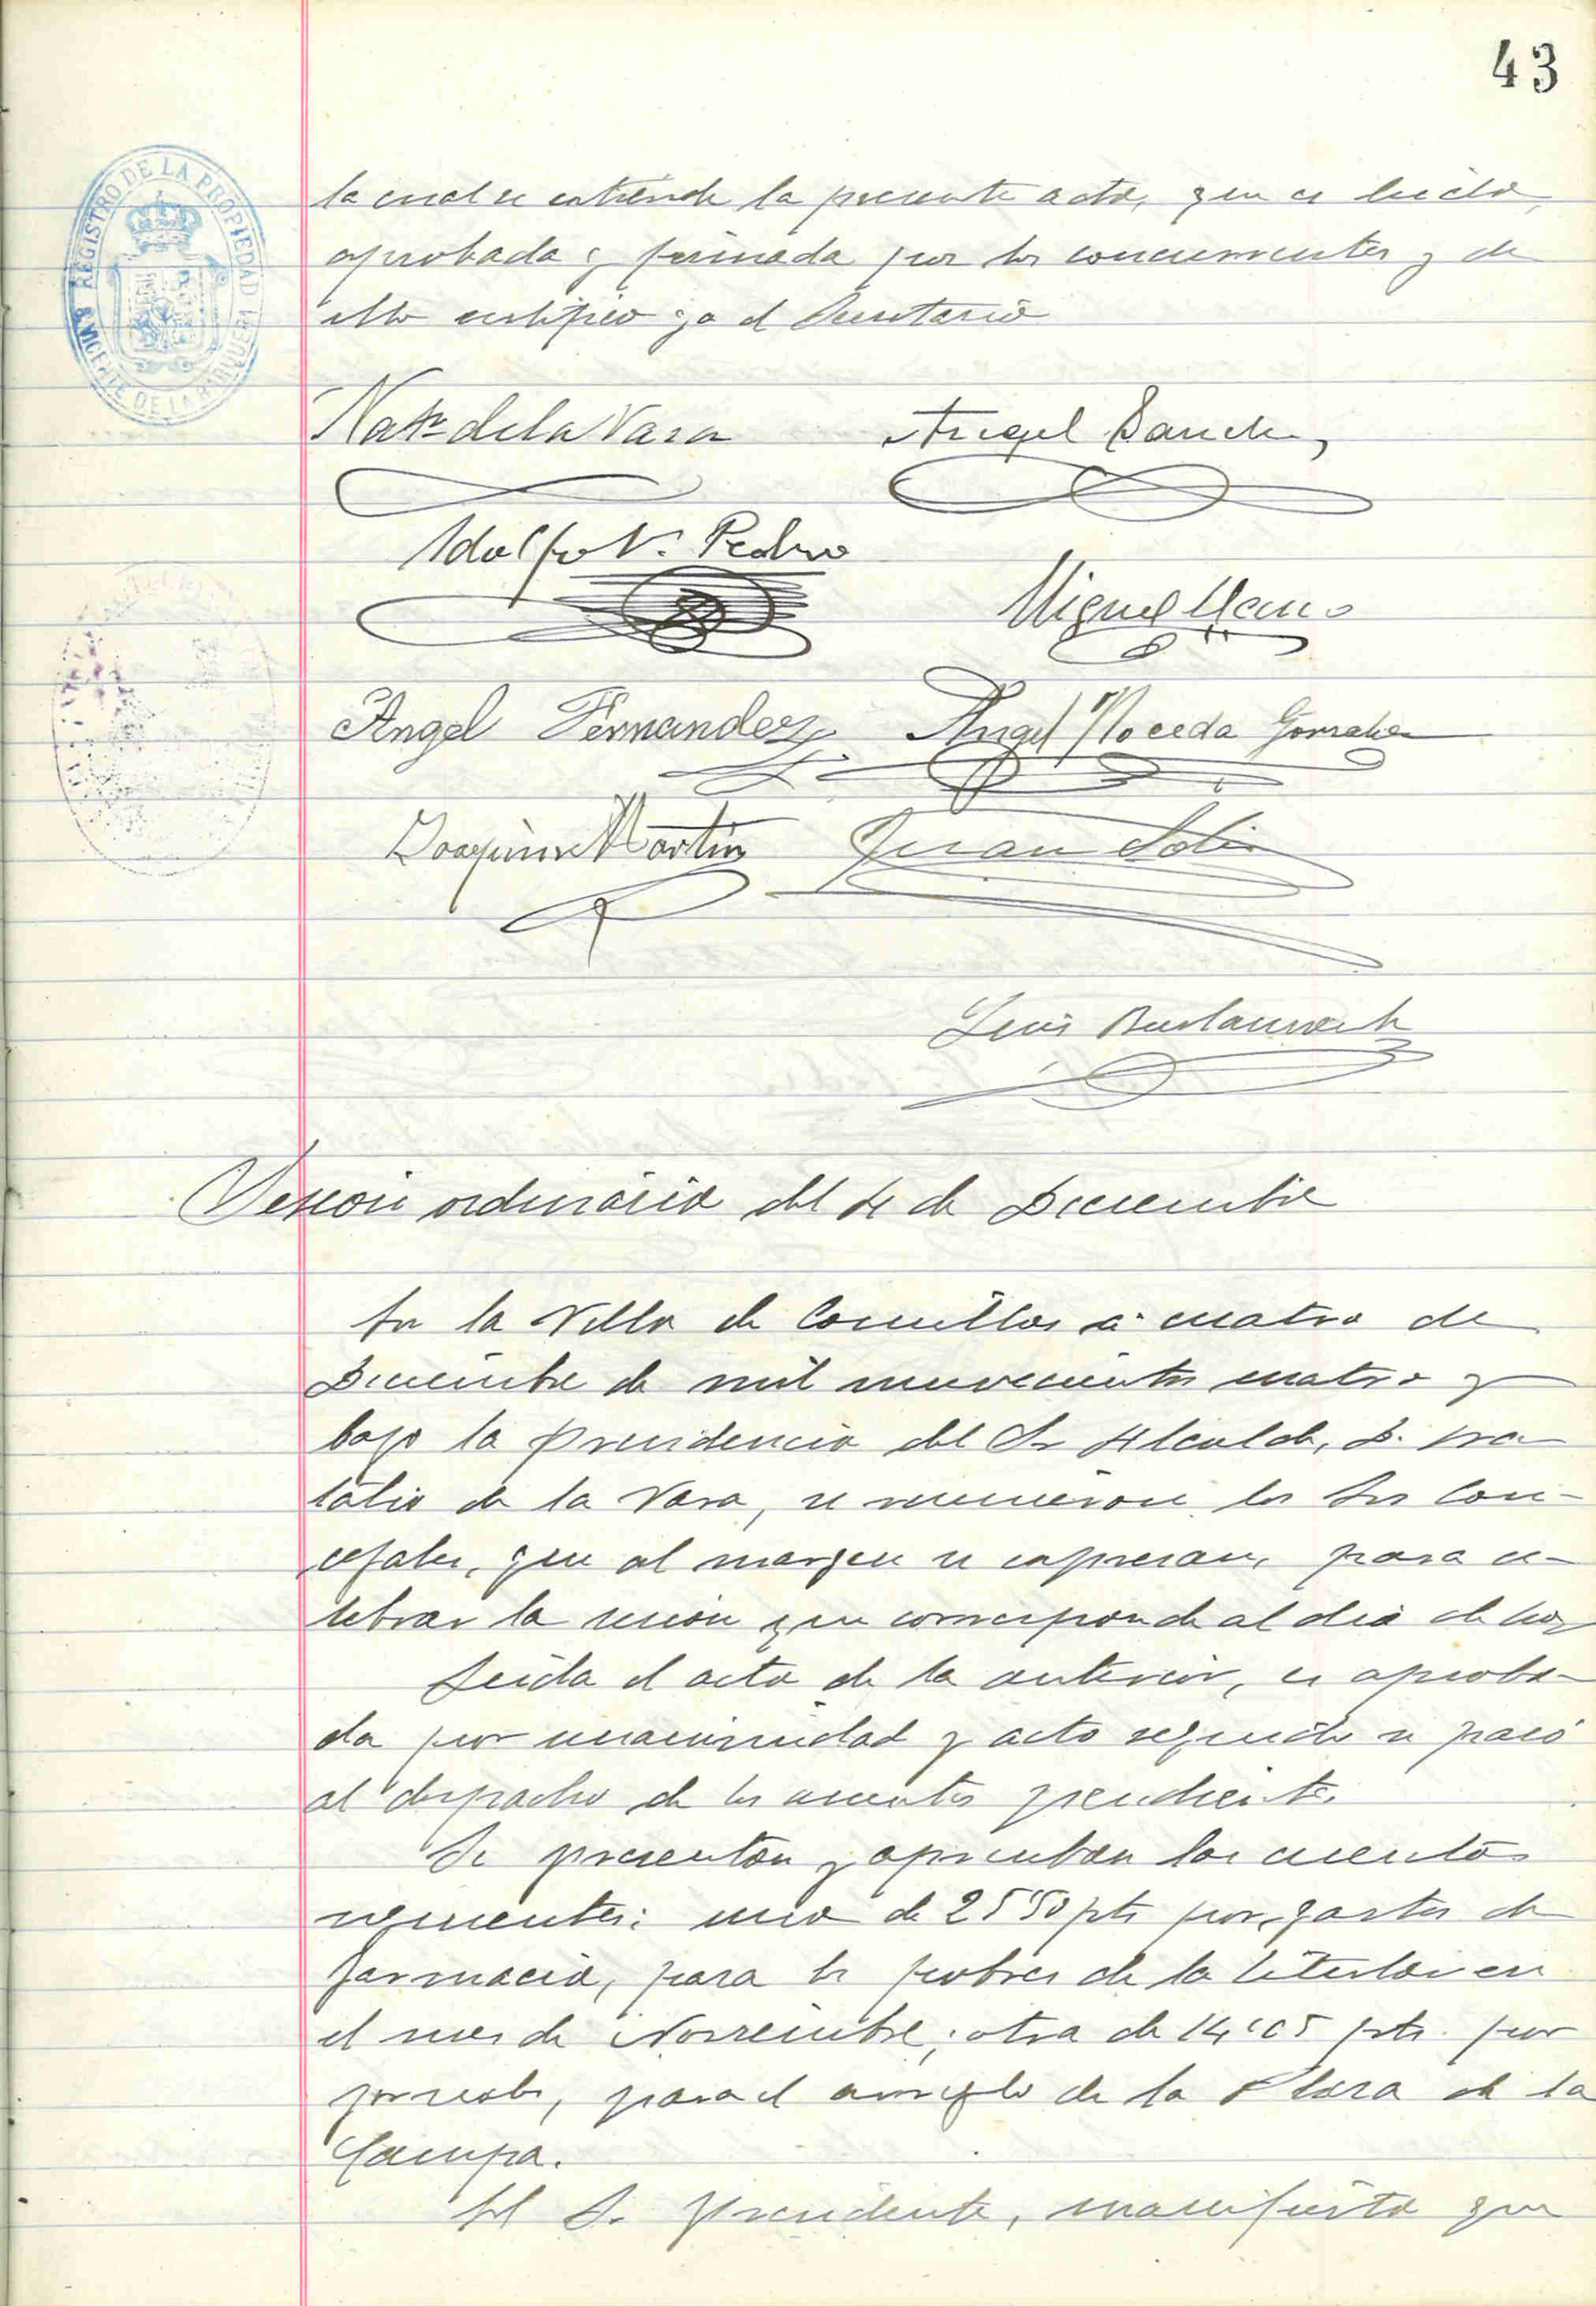 43
REGISTRO DE LA PROPIEDAD
S. VICENTE DE LA BARQUERA
la cual se extiende la presente acta, que es leida,
aprobada y firmada por los concurrentes y de
ello certifico yo el Secretario
Nat.º de la Vara Angel Sanchez
Adolfo V. Pedro
Miguel Llano
Angel Fernandez Angel Noceda Gonzalez
Joaquin Martin Juan Solis
Luis Bustamante
Sesion ordinaria del 4 de Diciembre
En la Villa de Comillas a cuatro de
Diciembre de mil novecientos cuatro y
bajo la Presidencia del Sr Alcalde, D. Na-
talio de la Vara, se reunieron los Srs Con-
cejales, que al margen se expresan, para ce-
lebrar la sesion que corresponde al dia de hoy
Leida el acta de la anterior, es aproba-
da por unanimidad y acto seguido se pasó
al despacho de los asuntos pendientes.
Se presentan y aprueban las cuentas
siguientes: una de 25'50 pts por gastos de
farmacia, para los pobres de la titular en
el mes de Noviembre; otra de 14'05 pts. por
para el arreglo de la Plaza de la
Campa.
El Sr. Presidente, manifiesta que